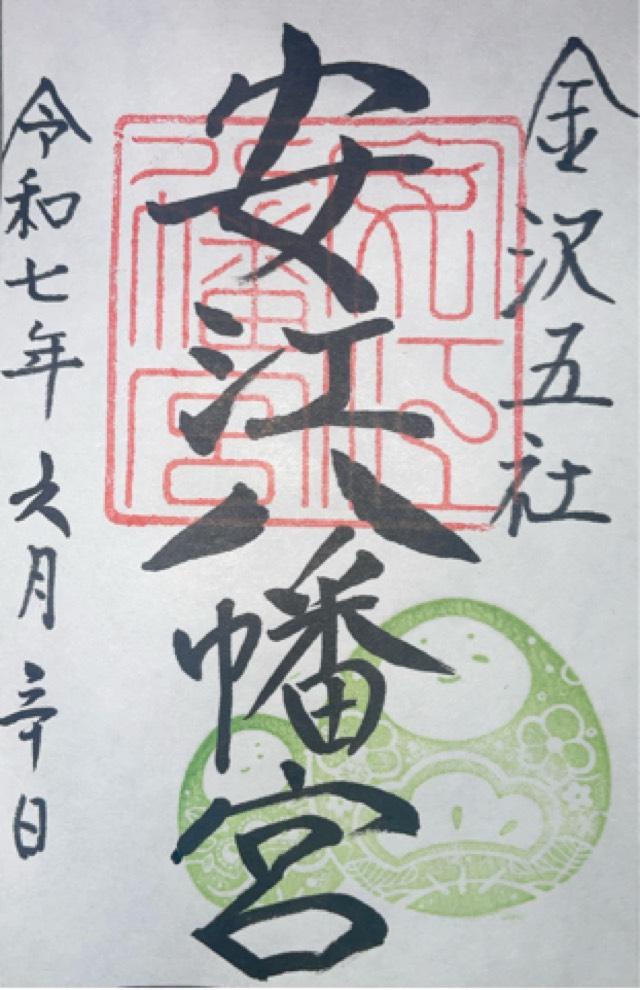 金沢五社
安江八幡宮
令和七年六月日
安江
八幡宮